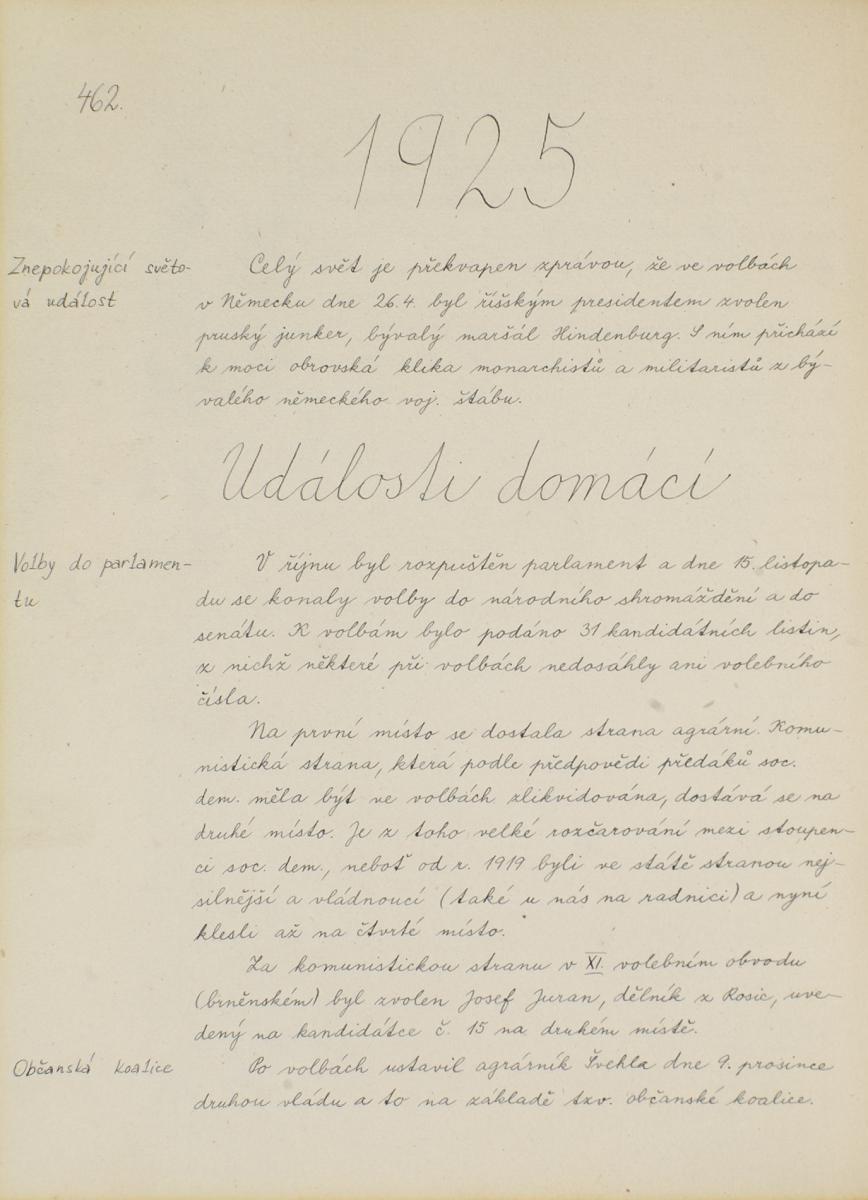 462.
1925
Znepokojující světo-
vá událost
Celý svět je překvapen zprávou, že ve volbách
v Německu dne 26.4. byl říšským presidentem zvolen
pruský junker, bývalý maršál Hindenburg. S ním přichází
k moci obrovská klika monarchistů a militaristů z bý-
valého německého voj. štábu.
Události domácí
Volby do parlamen-
tu
V říjnu byl rozpuštěn parlament a dne 15. listopa-
du se konaly volby do národního shromáždění a do
senátu. K volbám bylo podáno 31 kandidátních listin,
z nichž některé při volbách nedosáhly ani volebního
čísla.
Na první místo se dostala strana agrární. Komu-
nistická strana, která podle předpovědi předáků soc.
dem. měla být ve volbách zlikvidována, dostává se na
druhé místo. Je z toho velké rozčarování mezi stoupen-
ci soc. dem., neboť od r. 1919 byli ve státě stranou nej-
silnější a vládnoucí (také u nás na radnici) a nyní
klesli až na čtvrté místo.
Za komunistickou stranu v XI. volebním obvodu
(brněnském) byl zvolen Josef Juran, dělník z Rosic, uve-
dený na kandidátce č. 15 na druhém místě.
Občanská koalice
Po volbách ustavil agrárník Švehla dne 9. prosince
druhou vládu a to na základě tzv. občanské koalice.